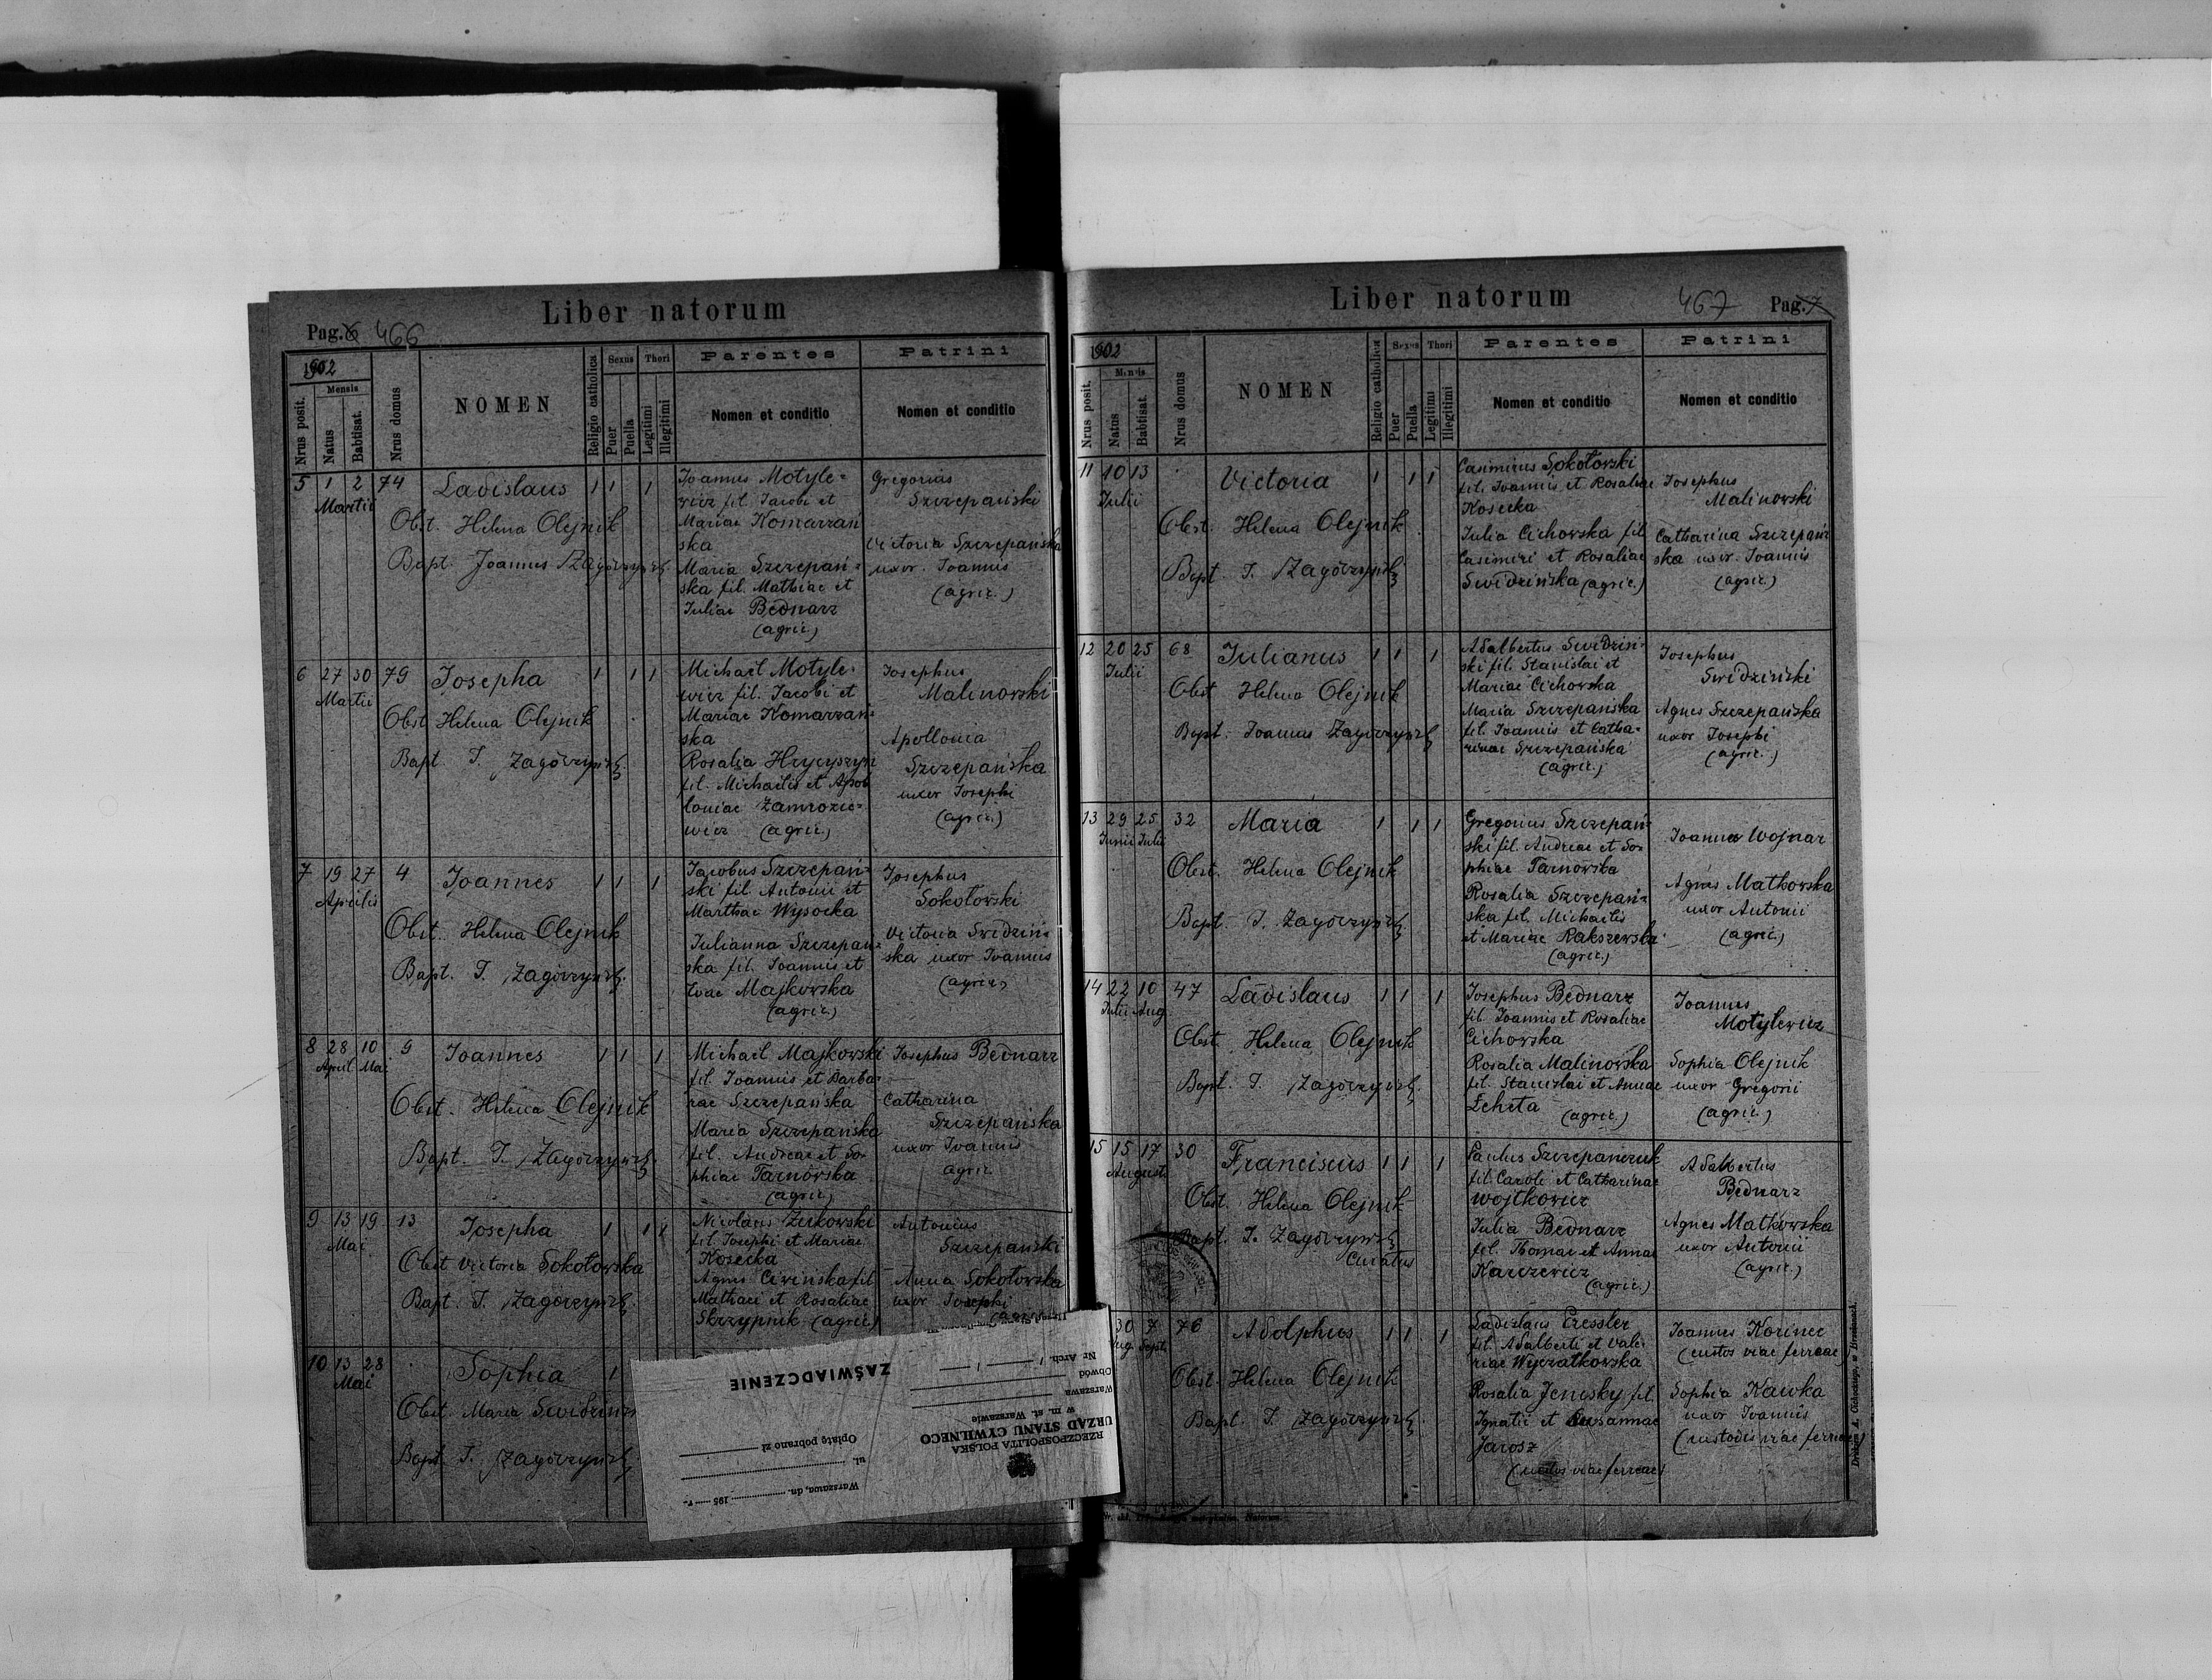 Liber natorum
Pag. 6 466
1902
Nrus posit.
Mensis
Natus
Babtisat.
Nrus domus
NOMEN
Religio catholica
Sexus
Puer
Puella
Thori
Legitimi
Illegitimi
Parentes
Nomen et conditio
Patrini
Nomen et conditio
5 1 2 74 Ladislaus 1 1 1
Martii
Obst. Helena Olejnik
Bapt. Joannes Zagórzyński
Joannes Motyle-
wicz fil. Jacobi et
Mariae Komarzań
ska
Maria Szczepań-
ska fil. Mathiae et
Juliae Bednarz
(agric.)
Gregorius
Szczepański
Victoria Szczepańska
uxor. Joannis
(agric.)
6 27 30 79 Josepha 1 1 1
Martii
Obst Helena Olejnik
Bapt J. Zagórzyński
Michael Motyle-
wicz fil. Jacobi et
Mariae Komarzań-
ska
Rosalia Hrycyszyn
fil. Michaelis et Apol
loniae Zamrozie-
wicz (agric.)
Josephus
Malinowski
Apollonia
Szczepańska
uxor Josephi
(agric.)
7 19 27 4 Joannes 1 1 1
Aprilis
Obst. Helena Olejnik
Bapt. J. Zagórzyński
Jacobus Szczepań-
ski fil. Antonii et
Marthae Wysocka
Julianna Szczepań-
ska fil. Joannis et
Evae Majkowska
(agric.)
Josephus
Sokołowski
Victoria Swidziń-
ska uxor Joannis
(agric.)
8 28 10 9 Joannes 1 1 1
April Mai
Obst. Helena Olejnik
Bapt. J. Zagórzyński
Michael Majkowski
fil. Joannis et Barba-
rae Szczepańska
Maria Szczepańska
fil. Andreae et So-
phiae Tarnowska
(agric.)
Josephus Bednarz
Catharina
Szczepańska
uxor Joannis
agric.
9 13 19 13 Josepha 1 1 1
Mai
Obst Victoria Sokołowska
Bapt. J. Zagórzyński
Nicolaus Żukowski
fil. Josephi et Mariae
Kosecka
Agnes fil
Mathaei et Rosaliae
Skrzypnik (agric)
Antonius
Szczepański
Anna Sokołowska
uxor Josephi
10 13 28 Sophia 1
Mai
Obst. Maria Swidzińs
Bapt J. Zagórzyński
ZAŚWIADCZENIE
Nr Arch.
Obwód
Warszawa
w m. st. Warszawie
URZĄD STANU CYWILNEGO
RZECZPOSPOLITA POLSKA
Opłatę pobrano zł
ul.
Warszawa, dn. 195 r.
Liber natorum
467 Pag. 7
1902
Nrus posit.
Mensis
Natus
Babtisat.
Nrus domus
NOMEN
Religio catholica
Sexus
Puer
Puella
Thori
Legitimi
Illegitimi
Parentes
Nomen et conditio
Patrini
Nomen et conditio
11 10 13 Victoria 1 1 1
Julii
Obst. Helena Olejnik
Bapt J. Zagórzyński
Casimirus Sokołowski
fil. Joannis et Rosaliae
Kosecka
Julia Cichowska fil
Casimiri et Rosaliae
Swidzińska (agric.)
Josephus
Malinowski
Catharina Szczepań-
ska uxor. Joannis
(agric.)
12 20 25 68 Julianus 1 1 1
Julii
Obst Helena Olejnik
Bapt. Joannes Zagórzyński
Adalbertus Swidziń-
ski fil. Stanislai et
Mariae Cichowska
Maria Szczepańska
fil. Joannis et Catha-
rinae Szczepańska
(agric.)
Josephus
Swidziński
Agnes Szczepańska
uxor Josephi
(agric.)
13 29 25 32 Maria 1 1 1
Junii Julii
Obst. Helena Olejnik
Bapt J. Zagórzyński
Gregorius Szczepań-
ski fil. Andreae et So-
phiae Tarnowska
Rosalia Szczepań-
ska fil. Michaelis
et Mariae Rakszewska
(agric.)
Joannes Wojnar
Agnes Matkowska
uxor Antonii
(agric.)
14 22 10 47 Ladislaus 1 1 1
Julii Aug.
Obst Helena Olejnik
Bapt. J. Zagórzyński
Josephus Bednarz
fil. Joannis et Rosaliae
Cichowska
Rosalia Malinowska
fil. Stanislai et Annae
(agric.)
Joannes
Motylewicz
Sophia Olejnik
uxor Gregorii
(agric.)
15 15 17 30 Franciscus 1 1 1
Augusti
Obst. Helena Olejnik
Bapt. J. Zagórzyński
Curatus
Paulus Szczepanczuk
fil Caroli et Catharinae
Wojtkowicz
Julia Bednarz
fil. Thomae et Annae
Karczewicz
(agric.)
Adalbertus
Bednarz
Agnes Matkowska
uxor Antonii
(agric.)
30 7 76 Adolphus 1 1 1
Aug. Sept.
Obst. Helena Olejnik
Bapt. J. Zagórzyński
Ladislaus Cressler
fil. Adalberti et Vale-
riae
Rosalia Jenesky fil.
Ignatii et Susannae
Jarosz
(custos viae ferreae)
Joannes Korinec
(custos viae ferreae)
Sophia Kawka
uxor Joannis
(custodis viae ferreae)